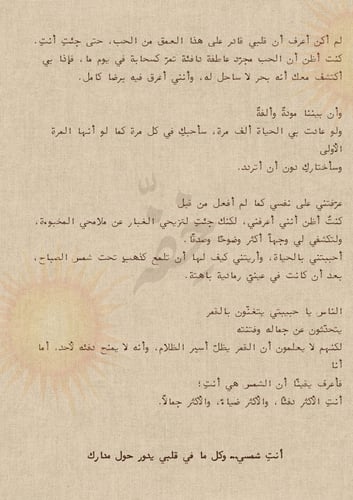 لم أكن أعرف أن قلبي قادر على هذا العمق من الحب، حتى جئتِ أنتِ.
كنت أظن أن الحب مجرّد عاطفة دافئة تمرّ كسحابة في يوم ما، فإذا بي
أكتشف معك أنه بحر لا ساحل له، وأنني أغرق فيه برضا كامل.
وأن بيننا مودةً وألفةً
ولو عادت بي الحياة ألف مرة، سأحبكِ في كل مرة كما لو أنها المرة
الأولى
وسأختاركِ دون أن أتردد.
عرّفتني على نفسي كما لم أفعل من قبل
كنتُ أظن أنني أعرفني، لكنك جئتِ لتزيحي الغبار عن ملامحي المخبوءة،
ولتكشفي لي وجهاً أكثر وضوحًا وصدقًا.
أحببتني بالحياة، وأريتني كيف لها أن تلمع كذهبٍ تحت شمس الصباح،
بعد أن كانت في عينيّ رمادية باهتة.
الناس يا حبيبتي يتغنّون بالقمر
يتحدّثون عن جماله وفتنته
لكنهم لا يعلمون أن القمر يظلّ أسير الظلام، وأنه لا يمنح دفئه لأحد. أما
أنا
فأعرف يقينًا أن الشمس هي أنتِ؛
أنتِ الأكثر دفئًا، والأكثر ضياءً، والأكثر جمالاً.
أنتِ شمسي.. وكل ما في قلبي يدور حول مدارك